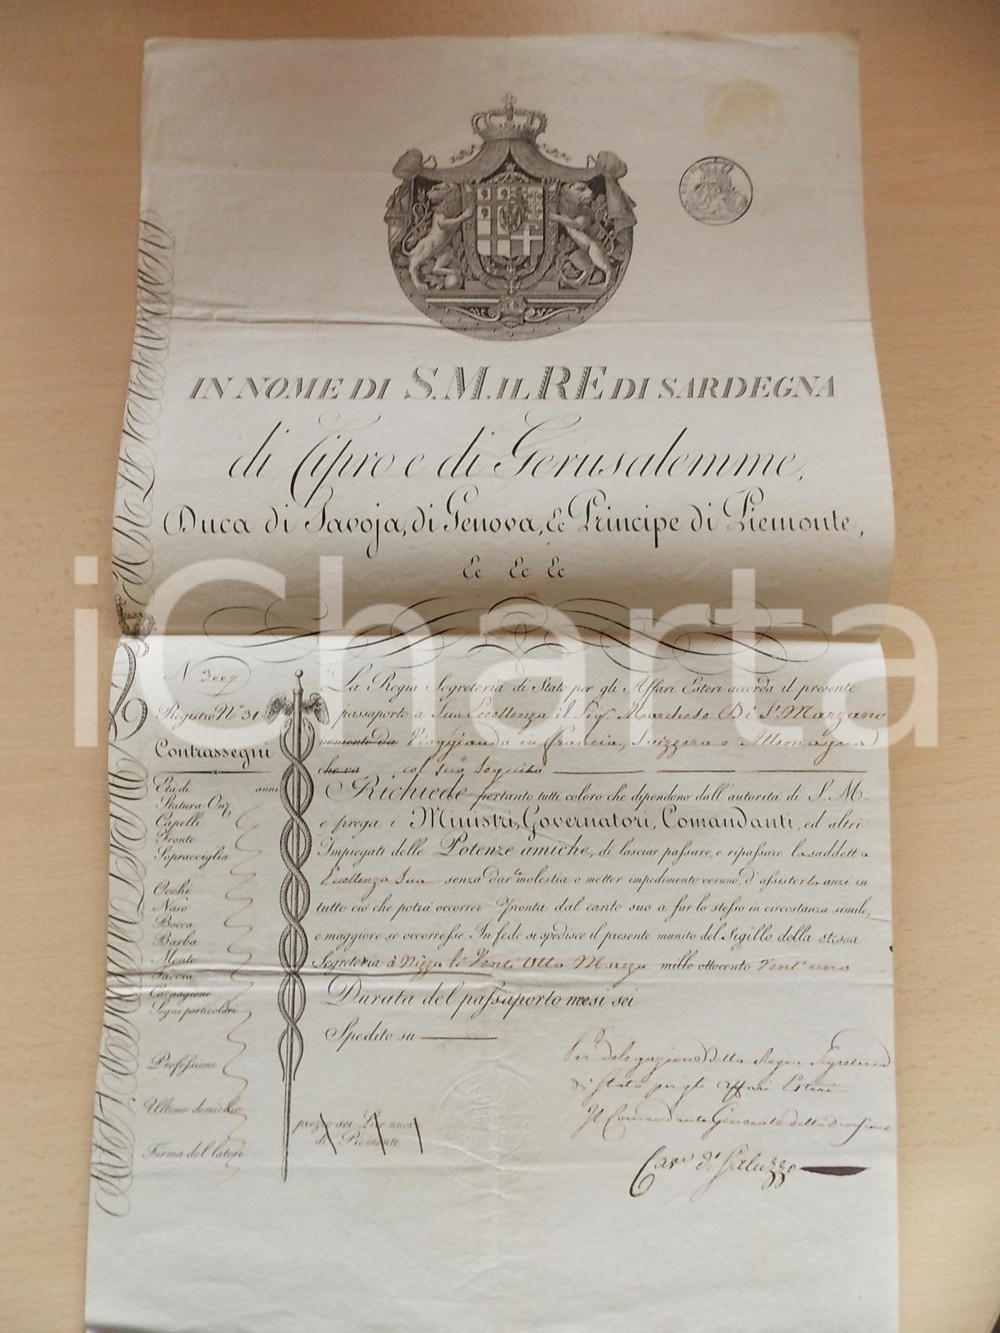 IN NOME DI S.M. IL RE DI SARDEGNA
di Cipro e di Gerusalemme,
Duca di Savoja, di Genova, &c Principe di Piemonte,
&c &c &c
iCharta
N. 3007
Registro N° 31
Contrassegni
Età di anni
Statura Onz
Capelli
Fronte
Sopracciglia
Occhi
Naso
Bocca
Barba
Mento
Faccia
Carnagione
Segni particolari
Professione
Ultimo domicilio
Firma del latore
La Regia Segreteria di Stato per gli Affari Esteri accorda il presente
passaporto a Sua Eccellenza il Sig. Marchese Di Sn Marzano
Viaggiando in Francia, Svizzera e Allemagna
che va col suo Seguito
Richiede pertanto tutti coloro che dipendono dall'autorità di S. M.
e prega i Ministri, Governatori, Comandanti, ed altri
Impiegati delle Potenze amiche, di lasciar passare, e ripassare la suddetta
Eccellenza Sua senza dar molestia o metter impedimento veruno, d'assisterla anzi in
tutto ciò che potrà occorrer. Pronta dal canto suo a far lo stesso in circostanza simile,
e maggiore se occorresse. In fede si spedisce il presente munito del Sigillo della stessa
Segreteria à Nizza li Venti Otto Marzo mille ottocento Vent'uno
Durata del passaporto mesi sei
Spedito su
prezzo sei Lire nuove
di Piemonte
Per delegazione della Regia Segreteria
di Stato per gli affari Esteri
Il Comandante Generale della Divisione
Cav. di Saluzzo